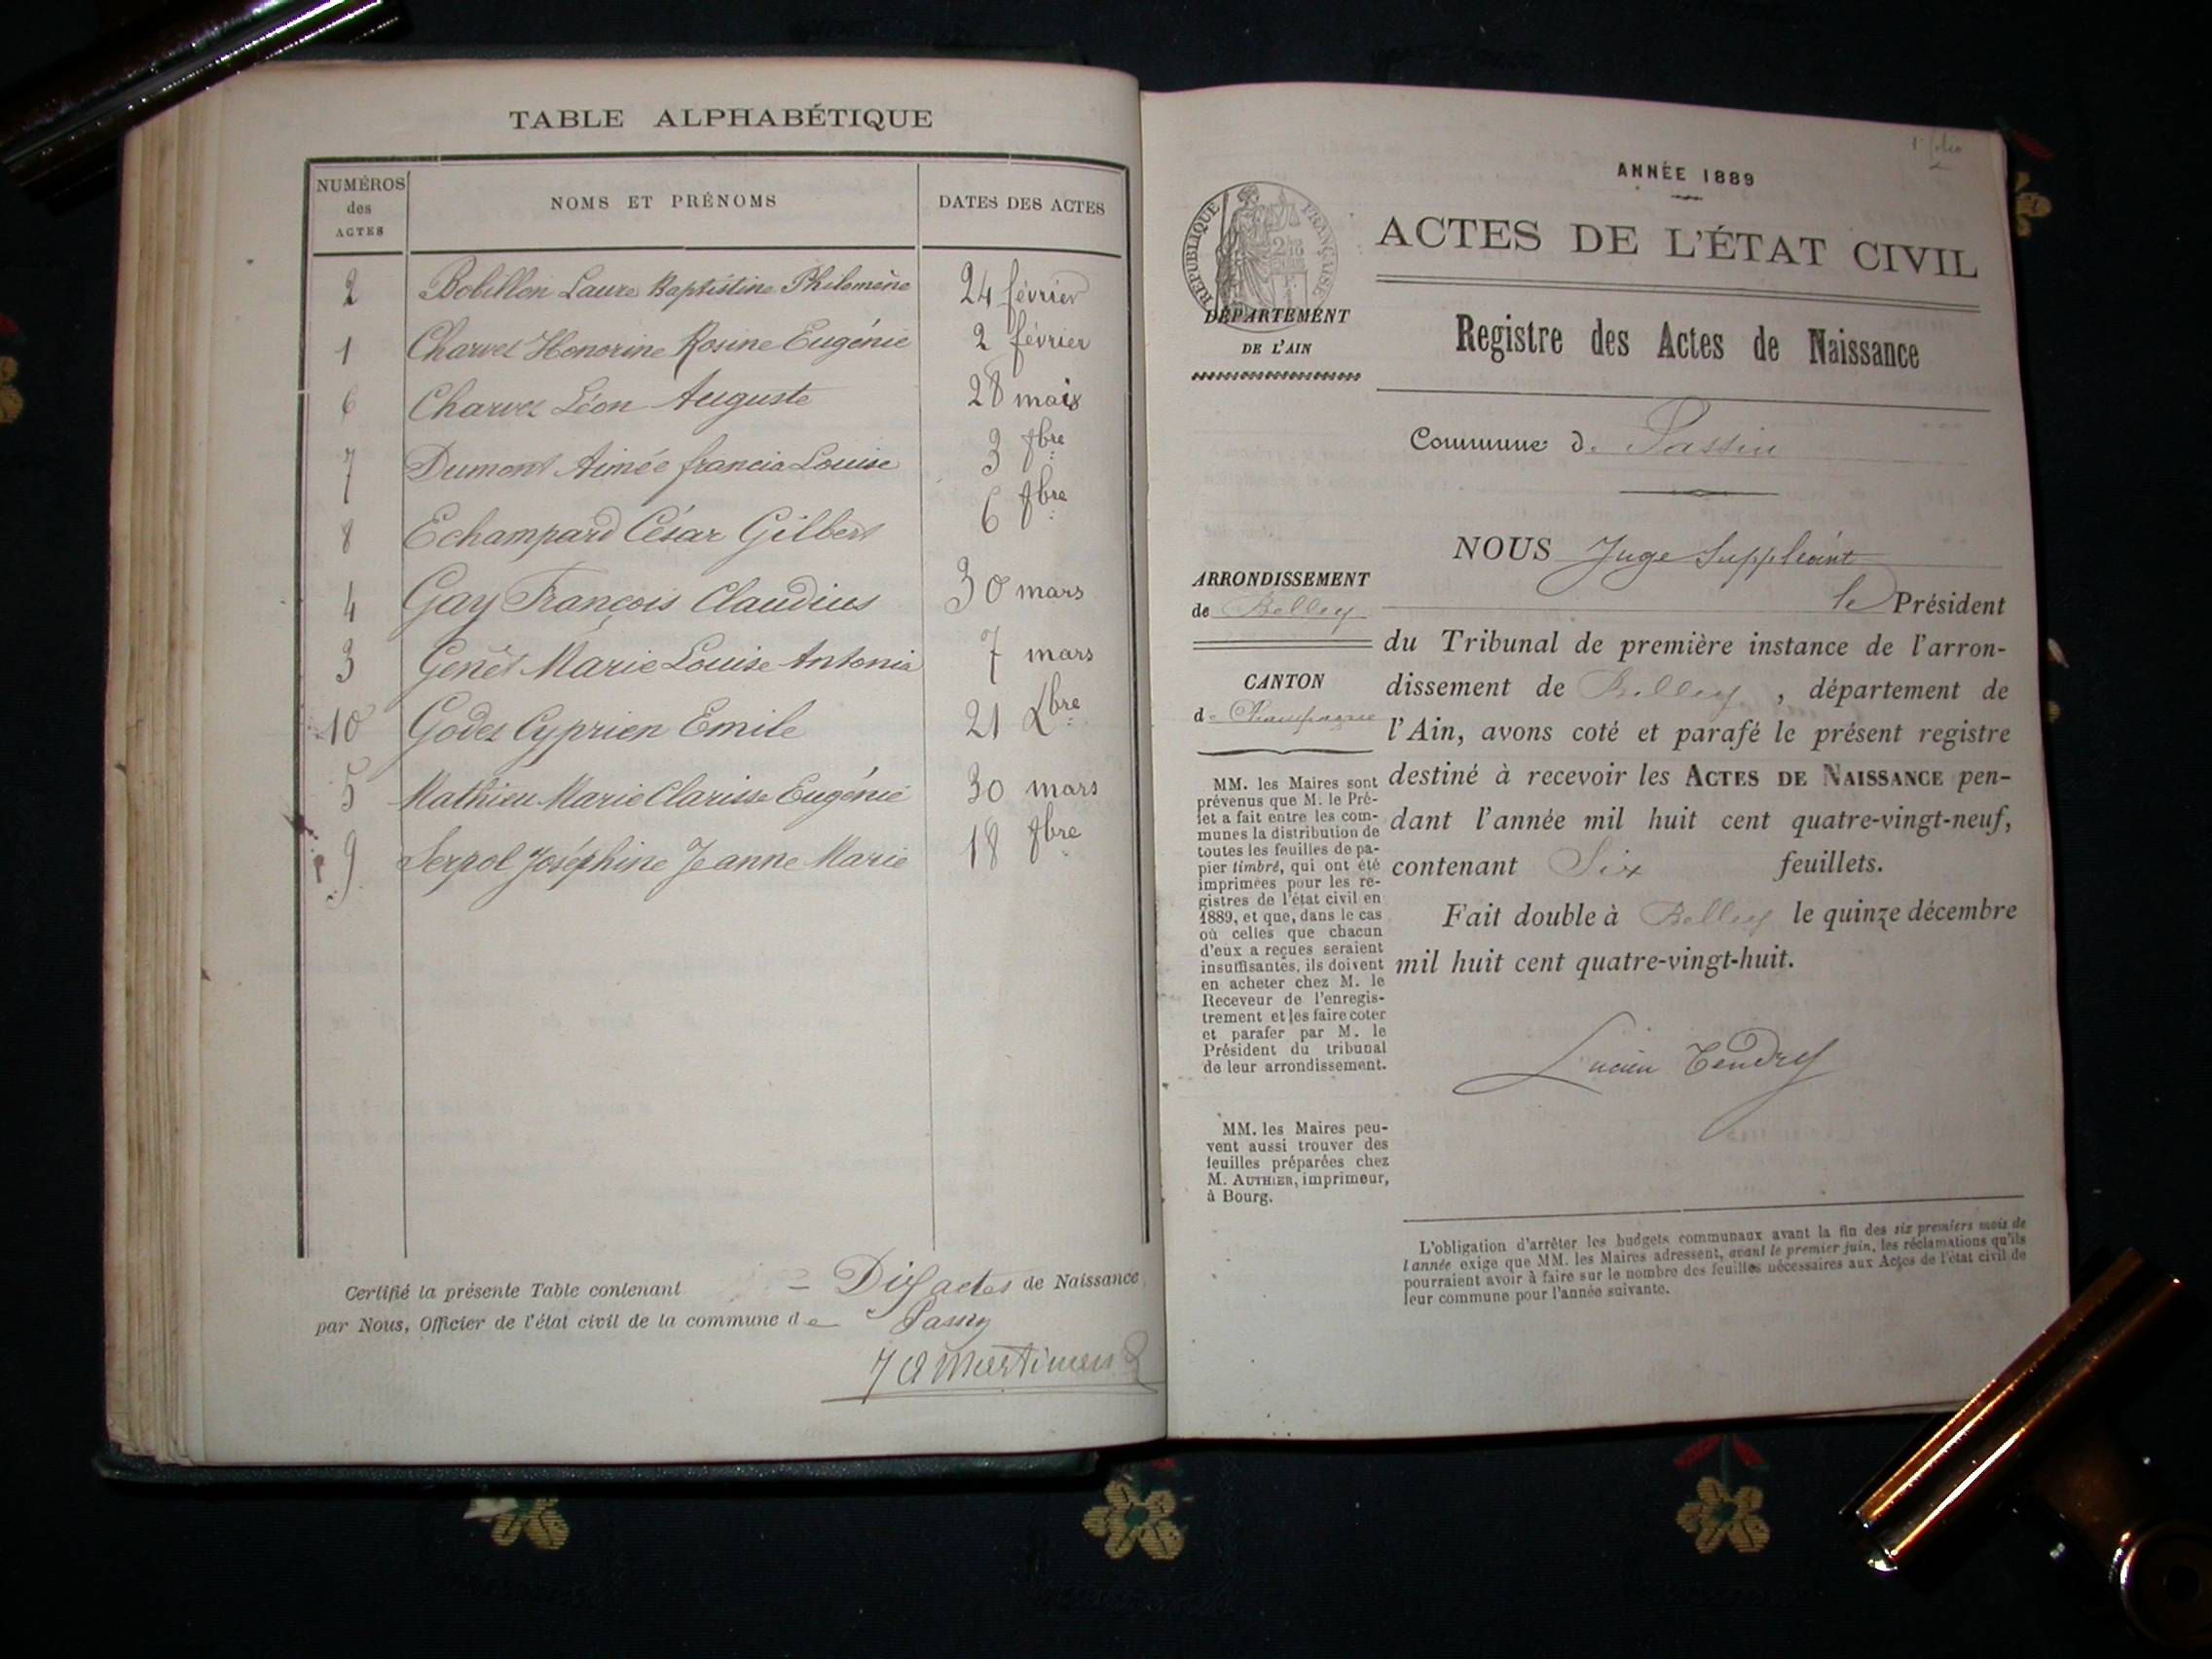 TABLE ALPHABÉTIQUE
NUMÉROS des ACTES
NOMS ET PRÉNOMS
DATES DES ACTES
2 Bobillon Laure Baptistine Philomène 24 février
1 Charvet Honorine Rosine Eugénie 2 février
6 Charvet Léon Auguste 28 mais
7 Dumont Aimée francia Louise 3 7bre
8 Echampard César Gilbert 6 7bre
4 Gay François Claudius 30 mars
3 Genêt Marie Louise Antonia 7 mars
10 Godet Cyprien Emile 21 Xbre
5 Mathieu Marie Clarisse Eugénie 30 mars
9 Serpol Joséphine Jeanne Marie 18 7bre
Certifié la présente Table contenant = Dix actes de Naissance
par Nous, Officier de l'état civil de la commune de
1er folio
ANNÉE 1889
RÉPUBLIQUE FRANÇAISE
ACTES DE L'ÉTAT CIVIL
DÉPARTEMENT
DE L'AIN
Registre des Actes de Naissance
Commune de Passin
ARRONDISSEMENT
de Belley
CANTON
de Champagne
MM. les Maires sont
prévenus que M. le Pré-
fet a fait entre les com-
munes la distribution de
toutes les feuilles de pa-
pier timbré, qui ont été
imprimées pour les re-
gistres de l'état civil en
1889, et que, dans le cas
où celles que chacun
d'eux a reçues seraient
insuffisantes, ils doivent
en acheter chez M. le
Receveur de l'enregis-
trement et les faire coter
et parafer par M. le
Président du tribunal
de leur arrondissement.
MM. les Maires peu-
vent aussi trouver des
feuilles préparées chez
M. AUTHIER, imprimeur,
à Bourg.
NOUS Juge Suppléant
le Président
du Tribunal de première instance de l'arron-
dissement de Belley, département de
l'Ain, avons coté et parafé le présent registre
destiné à recevoir les ACTES DE NAISSANCE pen-
dant l'année mil huit cent quatre-vingt-neuf,
contenant Six feuillets.
Fait double à Belley le quinze décembre
mil huit cent quatre-vingt-huit.
Lucien Tendret
L'obligation d'arrêter les budgets communaux avant la fin des six premiers mois de
l'année exige que MM. les Maires adressent, avant le premier juin, les réclamations qu'ils
pourraient avoir à faire sur le nombre des feuilles nécessaires aux Actes de l'état civil de
leur commune pour l'année suivante.